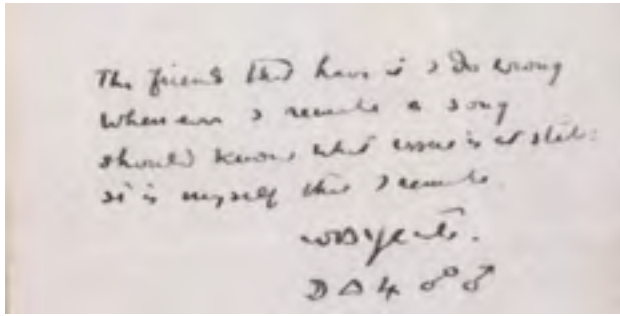 The friends that have it I do wrong
When ever I remake a song
Should know what issue is at stake:
It is myself that I remake.
WB Yeats.
☽ △ ♃ ☍ ♂